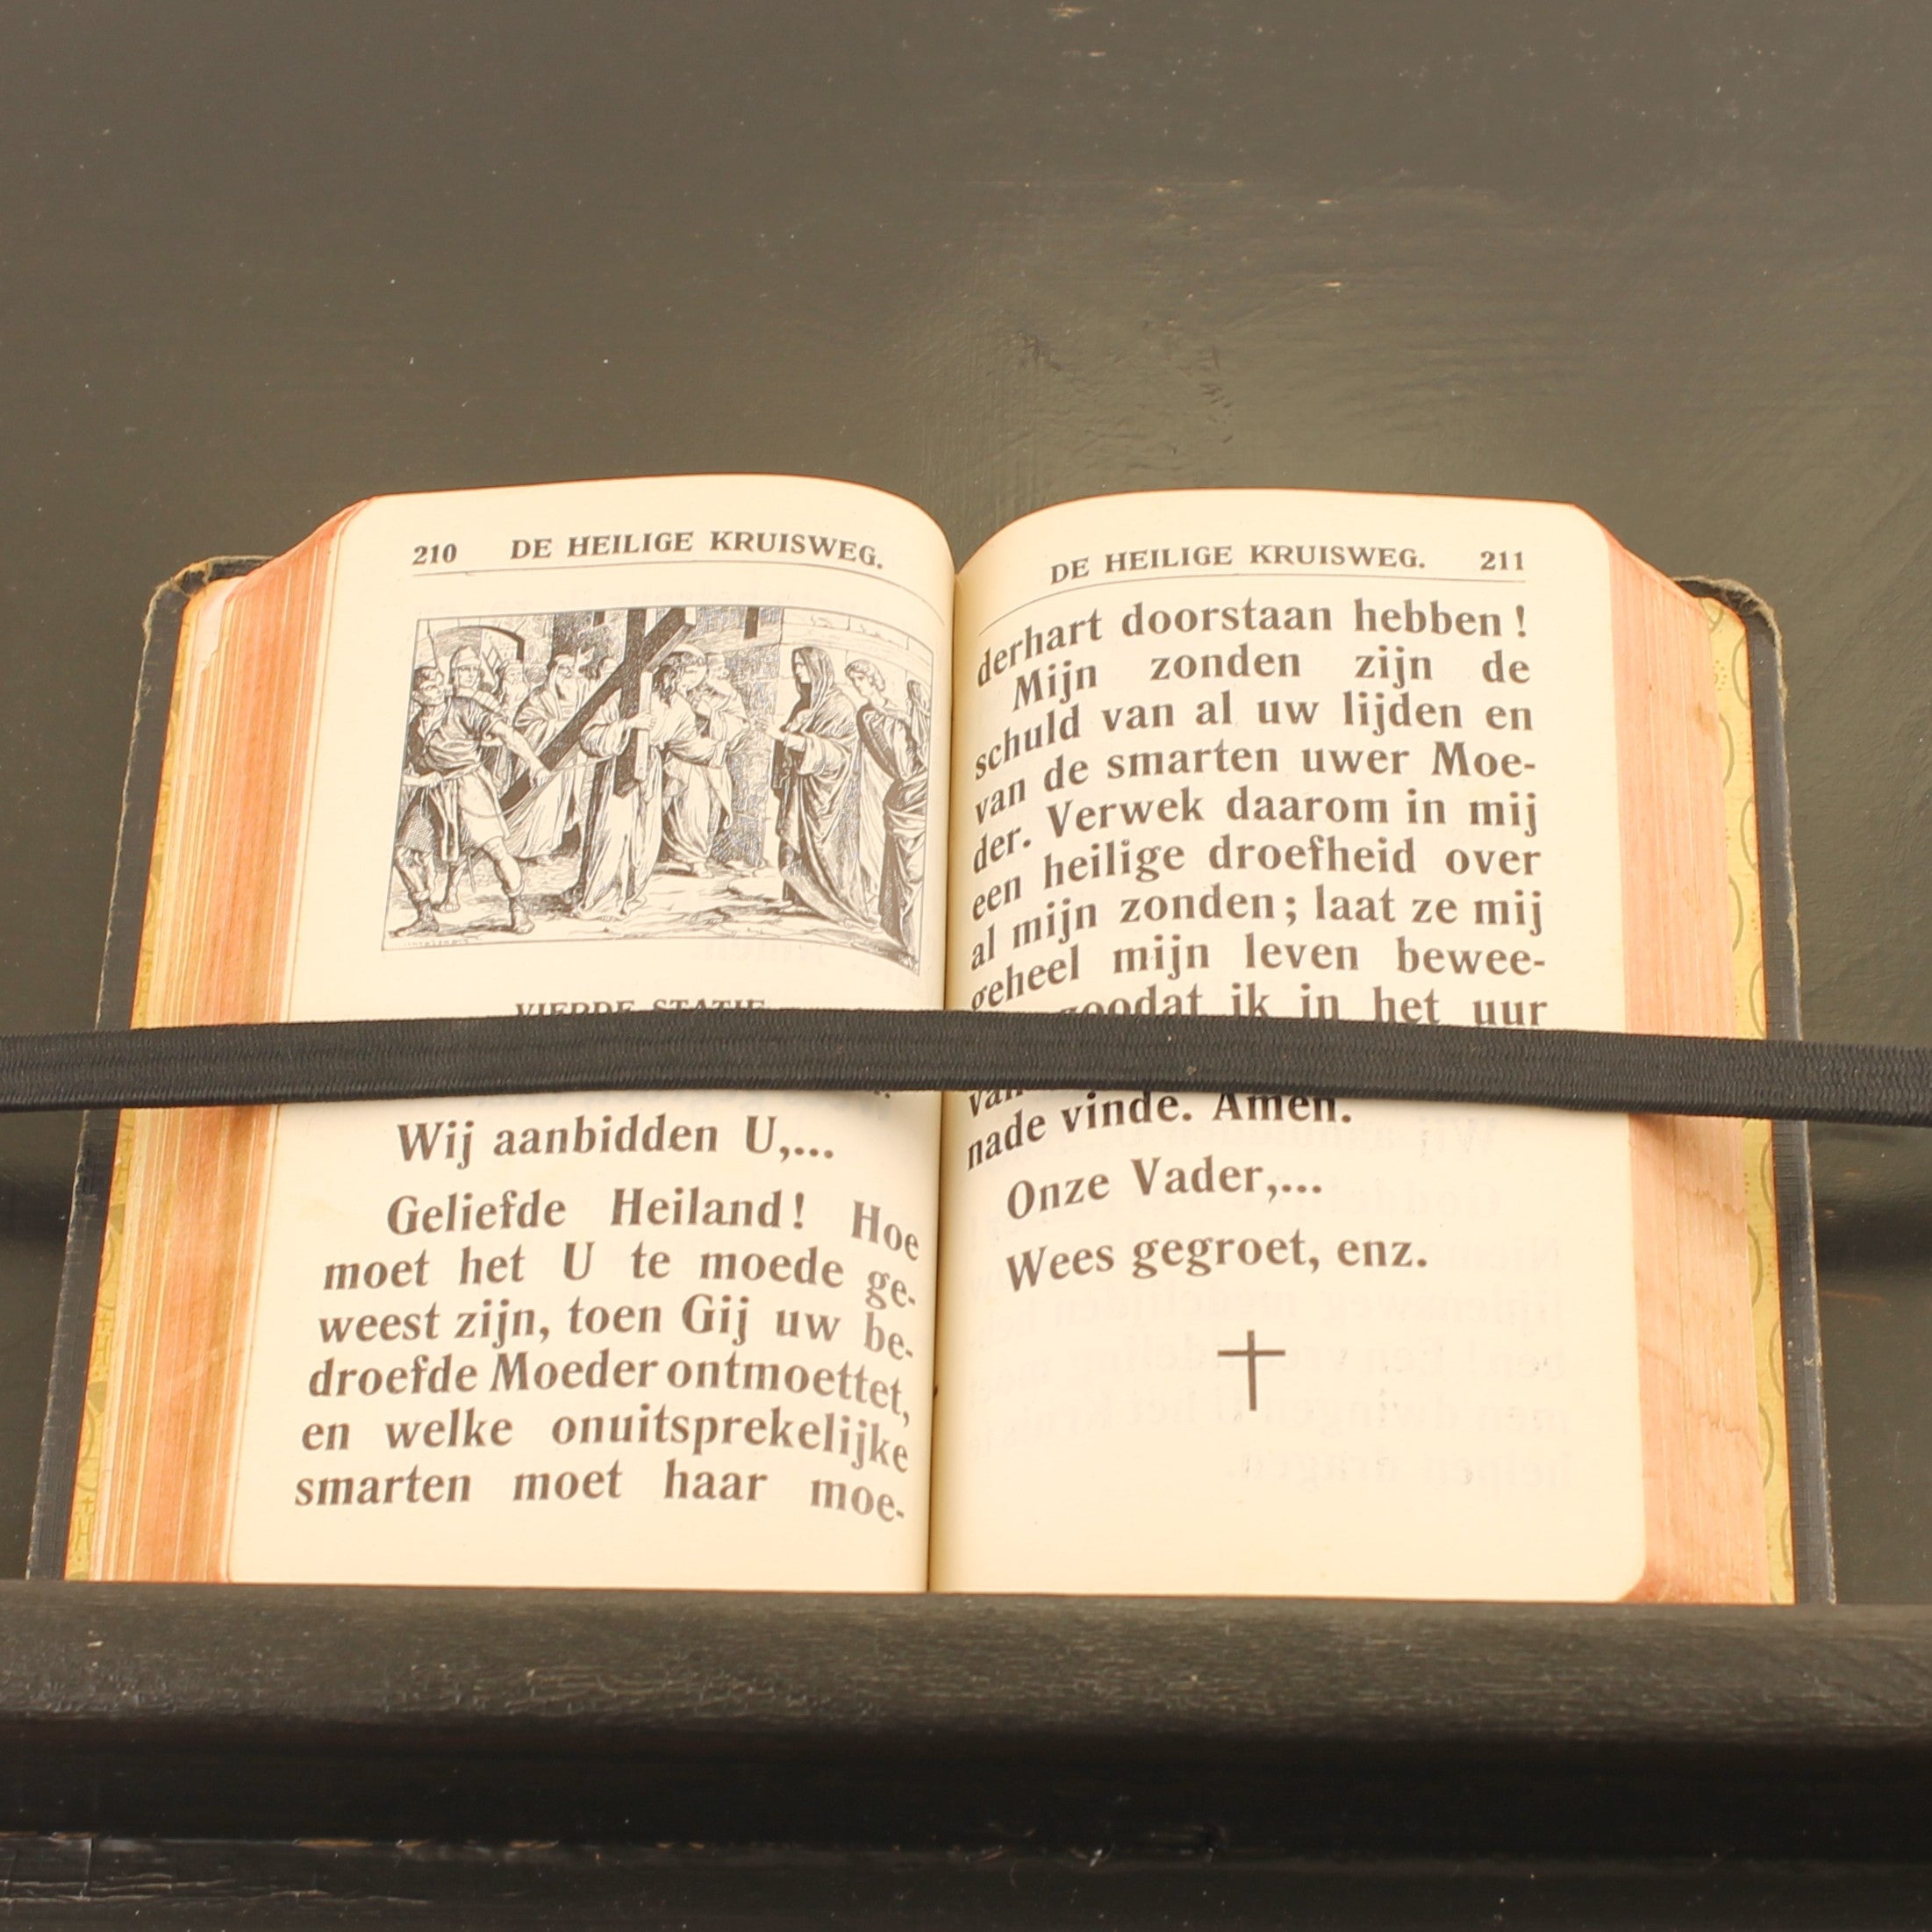 210 DE HEILIGE KRUISWEG.
VIERDE STATIE
Wij aanbidden U,...
Geliefde Heiland! Hoe
moet het U te moede ge-
weest zijn, toen Gij uw be-
droefde Moeder ontmoettet,
en welke onuitsprekelijke
smarten moet haar moe-
DE HEILIGE KRUISWEG. 211
derhart doorstaan hebben!
Mijn zonden zijn de
schuld van al uw lijden en
van de smarten uwer Moe-
der. Verwek daarom in mij
een heilige droefheid over
al mijn zonden; laat ze mij
geheel mijn leven bewee-
zoodat ik in het uur
van
nade vinde. Amen.
Onze Vader,...
Wees gegroet, enz.